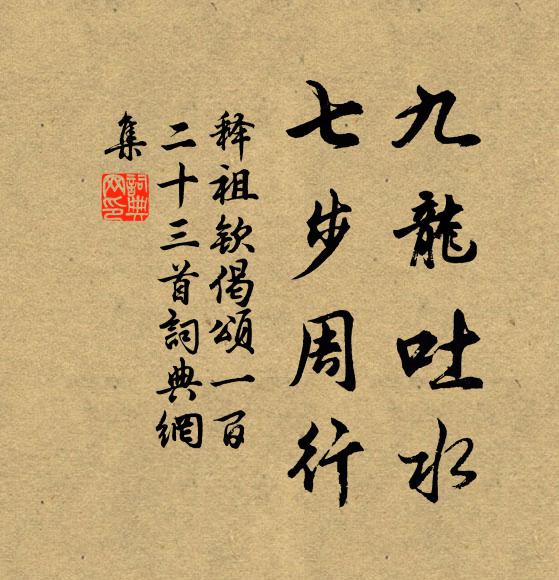 九龍吐水
七步周行
釋祖欽偈頌一百
二十三首詞典網
集
詞典
網印